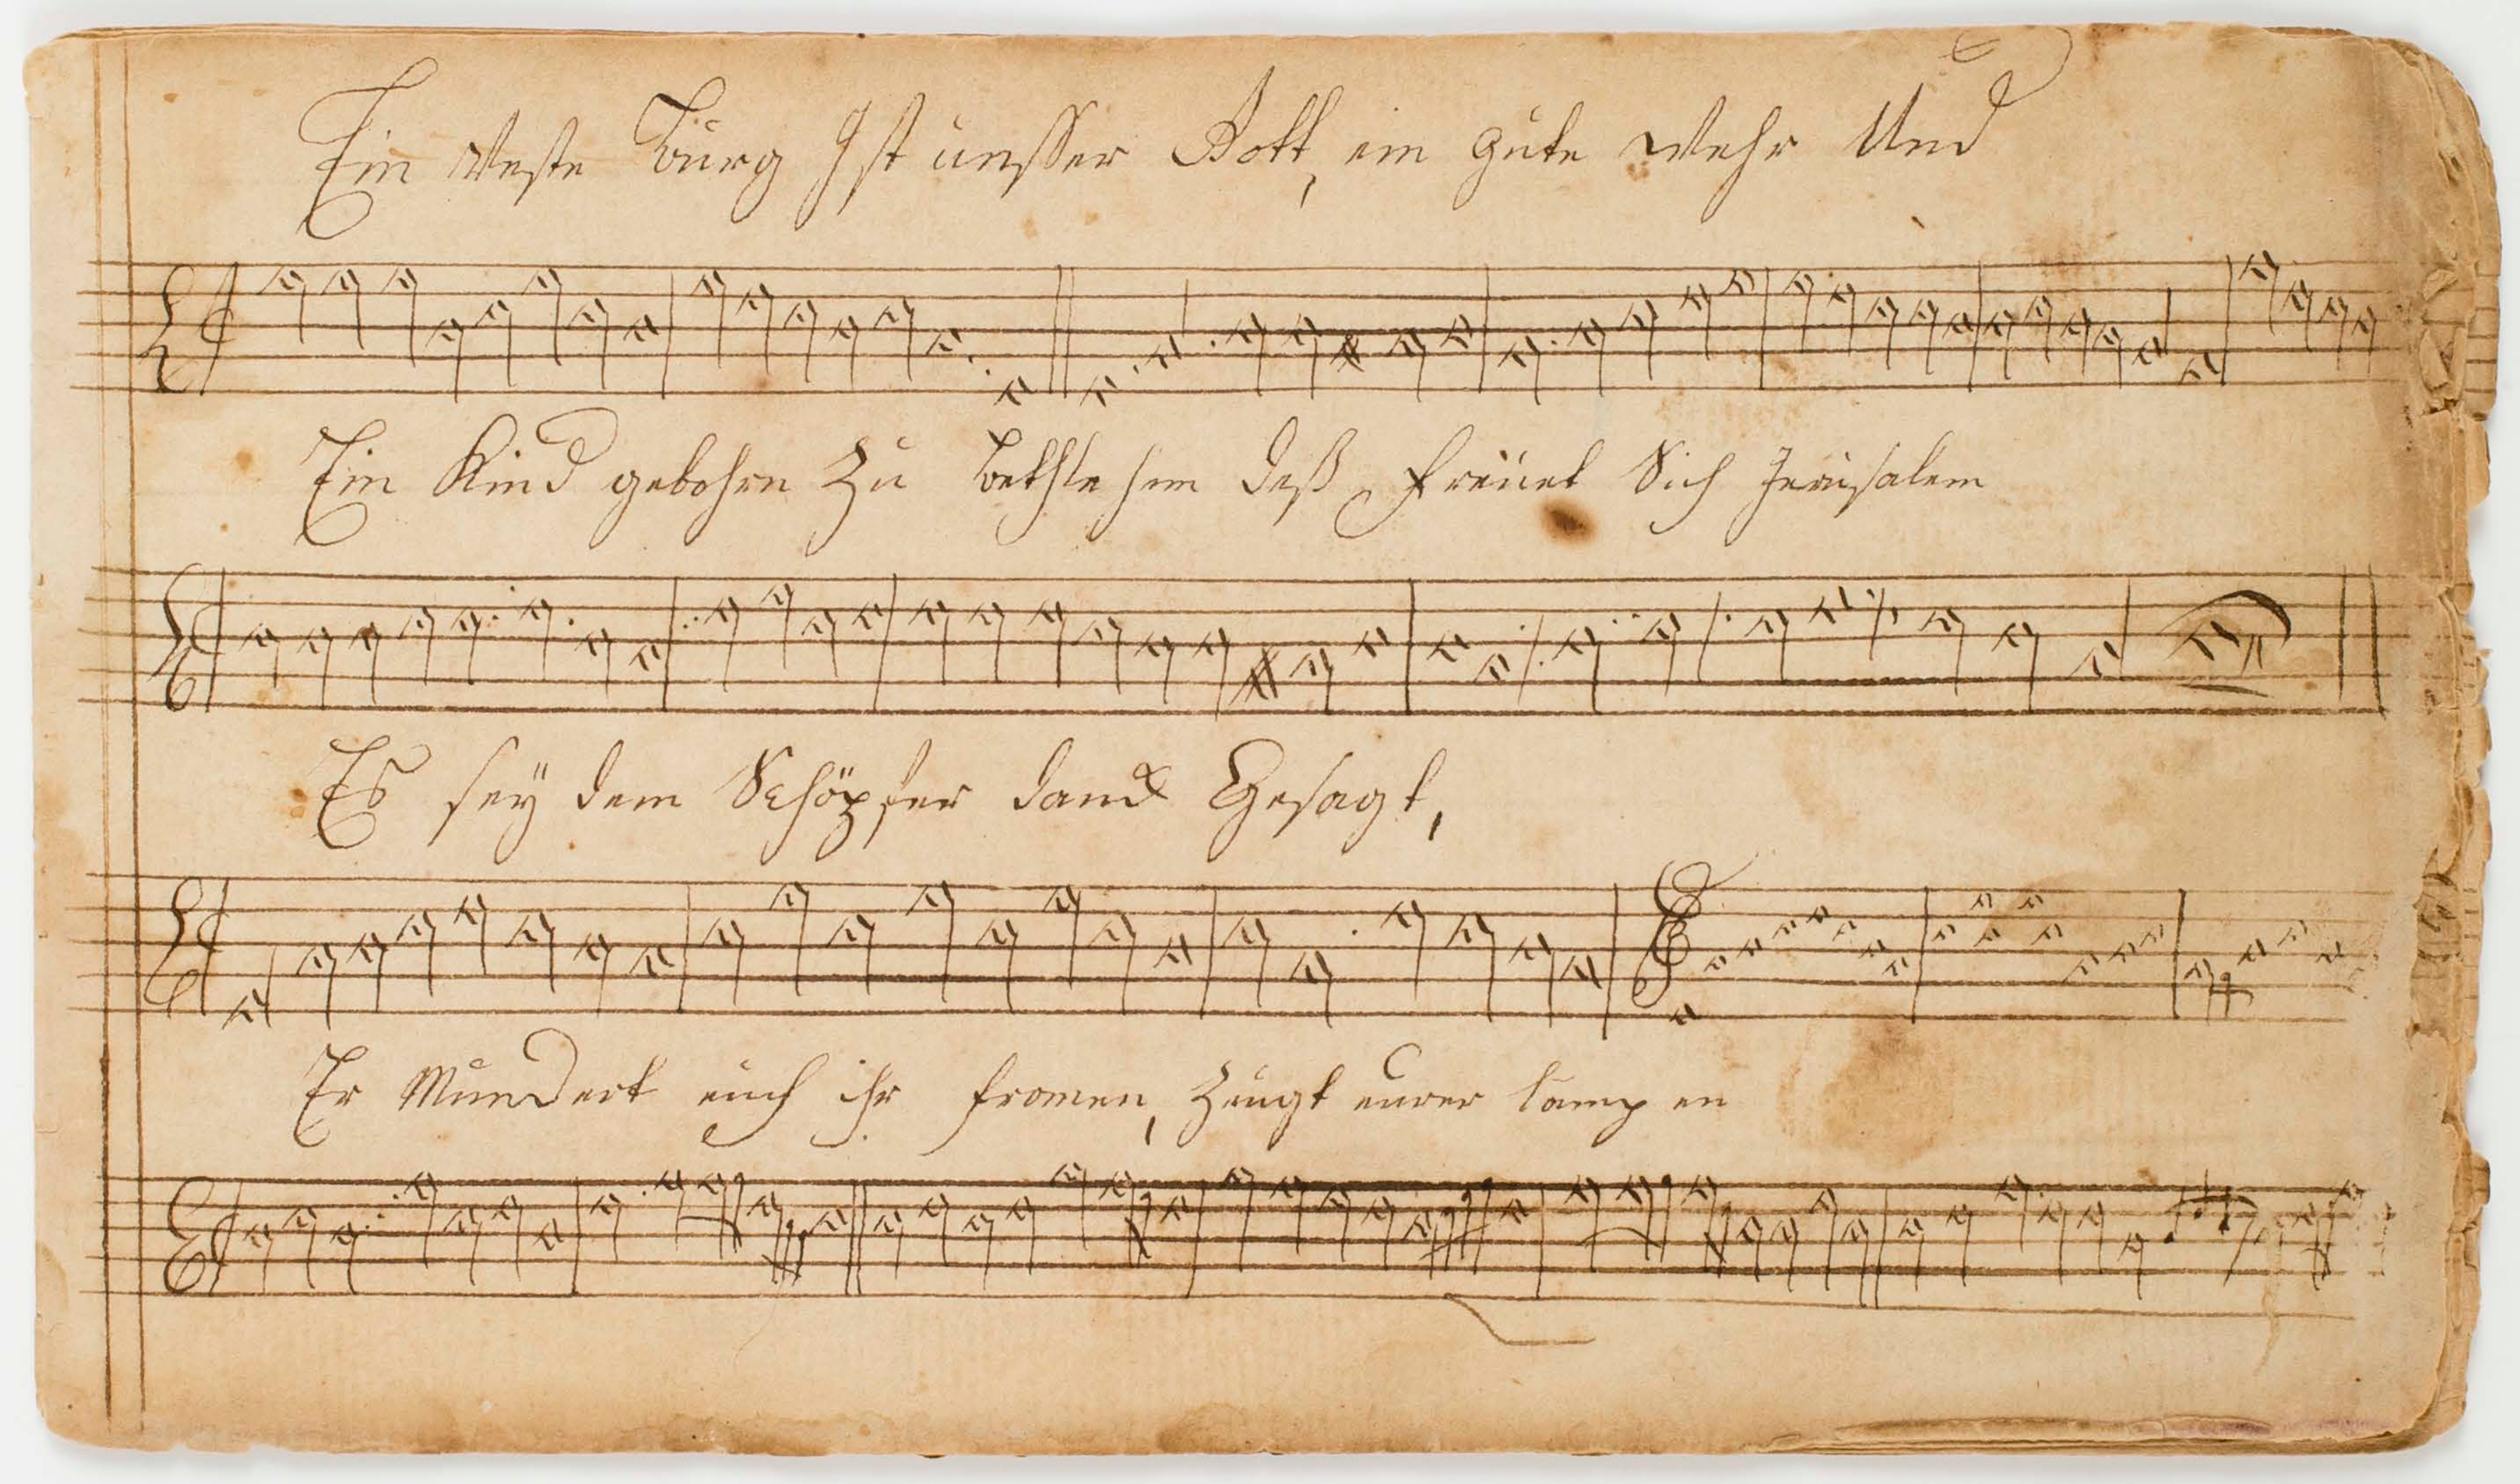 Ein Veste Burg Ist unsser Gott, ein gute Wehr Und
Ein Kind gebohrn Zu Bethlehem deß freuet Sich Jerusalem
Es sey dem Schöpfer danck Gesagt,
Er Mundert euch ihr fromen, Zeugt eurer lampen